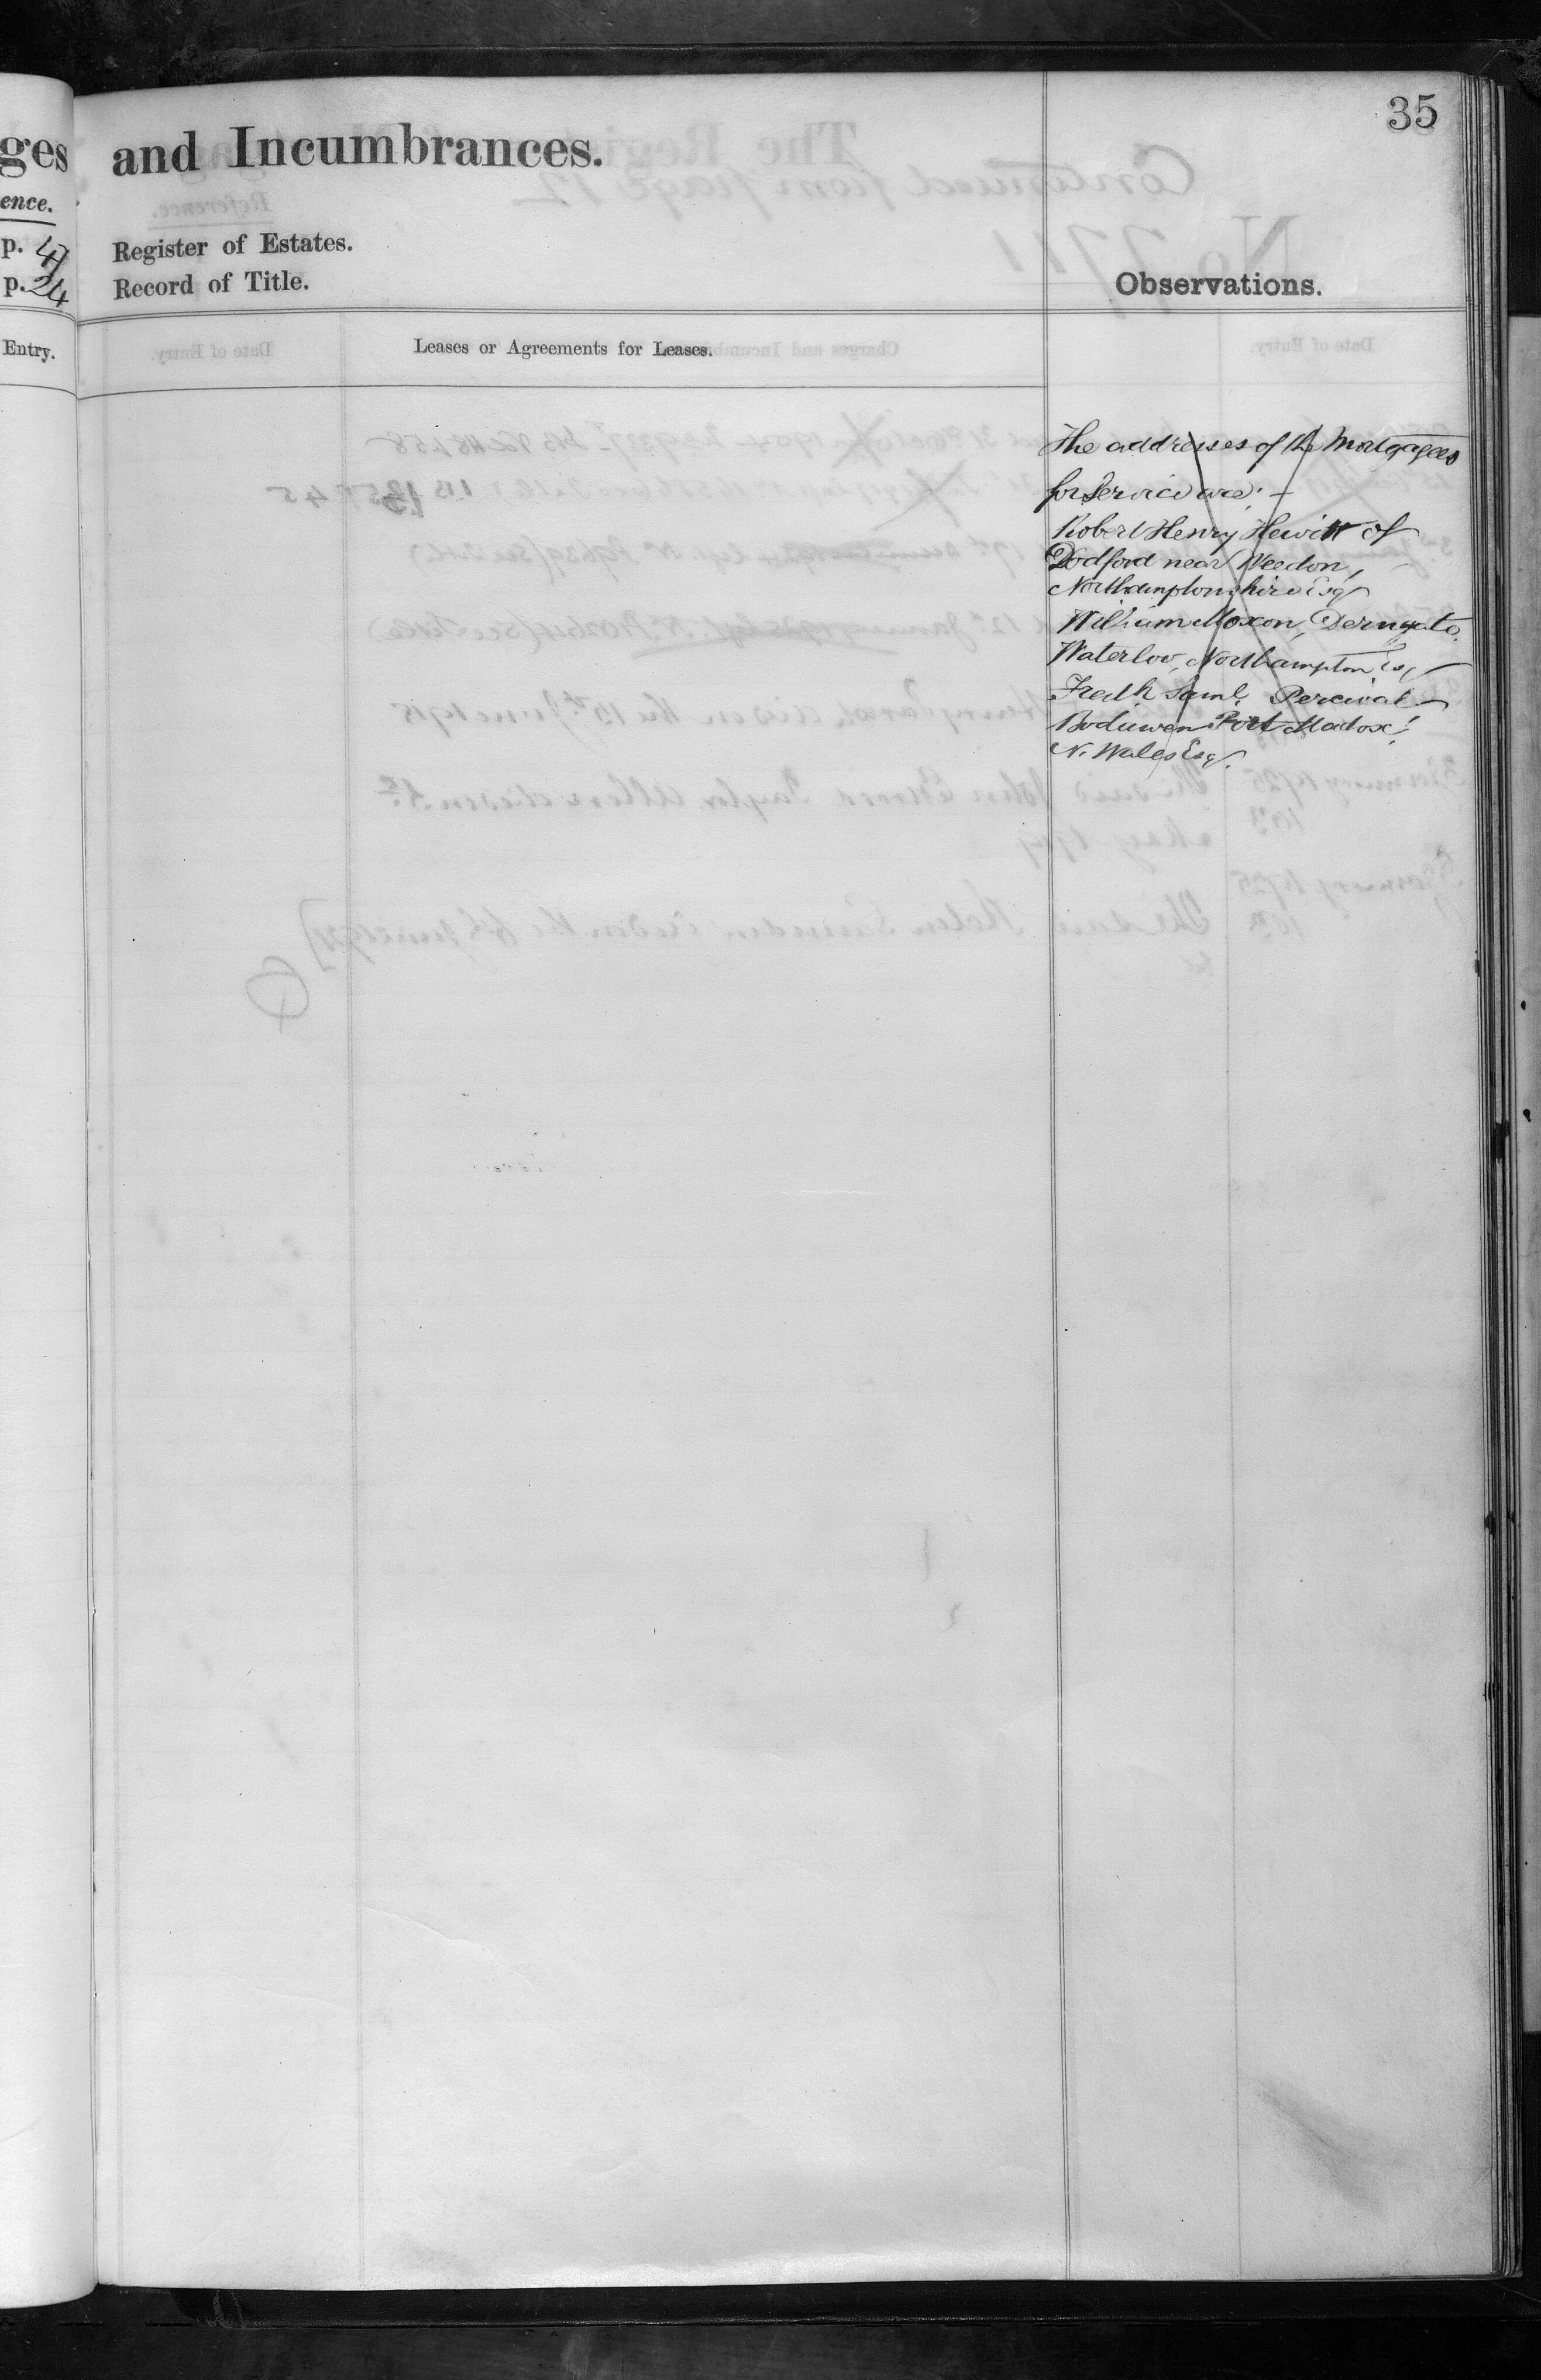 35
ges and Incumbrances.
ence.
p. 47 Register of Estates.
p. 24 Record of Title.
Observations.
Entry.
Leases or Agreements for Leases.
The addresses of the Mortgagees
for Service are:—
Robert Henry Hewitt of
Dodford near Weedon,
Northamptonshire Esq
William Moxon, Derngate
Waterloo, Northampton Esq
Fredk Saml Percival
Bodawen Port Madoc
N. Wales Esq.